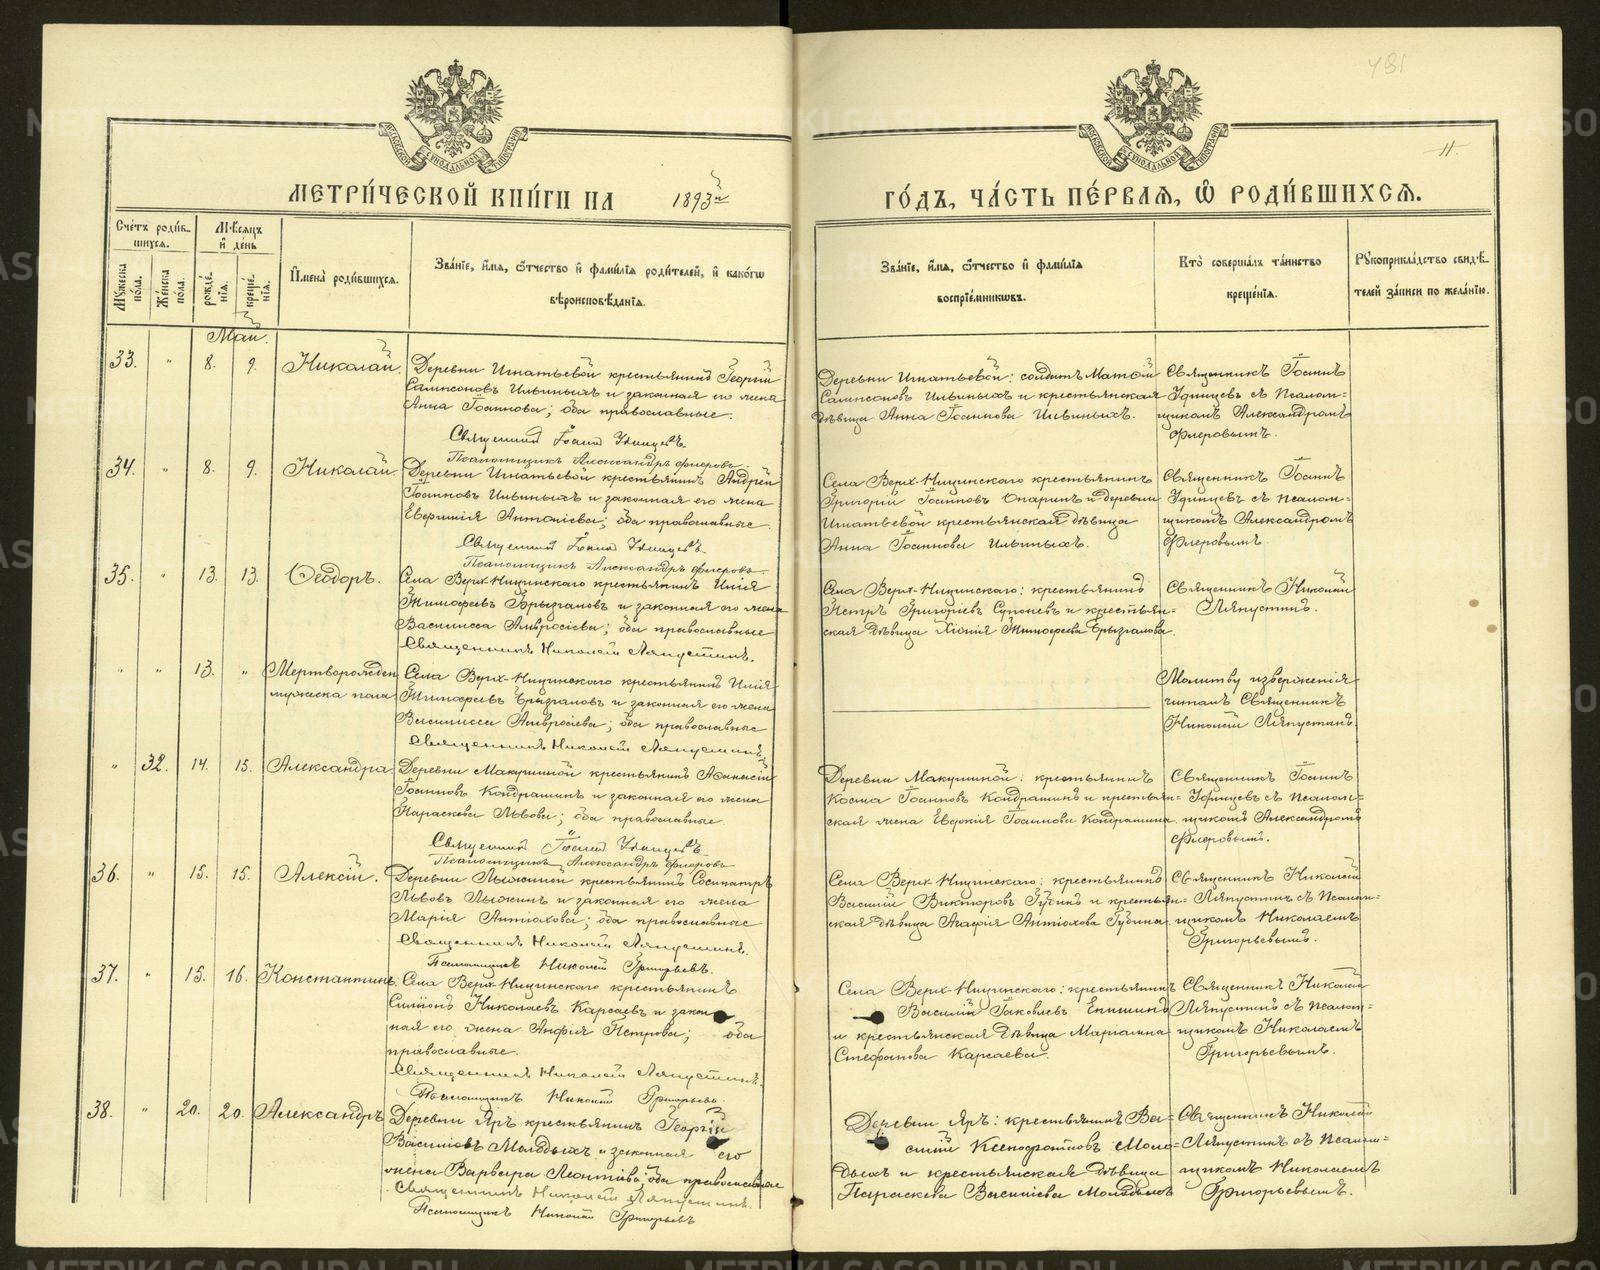 МЕТРИ́ЧЕСКОЙ КНИ́ГИ НА 1893й
ГО́ДЪ, ЧА́СТЬ ПЕ́РВАѦ, Ѽ РОДИ́ВШИХСѦ.
481
11.
Сче́тъ роди́в-
шихся.
Мѣсяцъ
и҆ де́нь
Мꙋ́жеска по́ла.
Же́нска по́ла.
рожде́нїѧ.
креще́нїѧ.
И҆мена̀ роди́вшихсѧ.
Зва́нїе, и҆́мѧ, ѻ҆́тчество и҆ фами́лїѧ роди́телей, и҆ како́гѡ
вѣроисповѣ́данїѧ.
Зва́нїе, и҆́мѧ, ѻ҆́тчество и҆ фами́лїѧ
воспрїе́мникѡвъ.
Кто̀ соверша́лъ та́инство
креще́нїѧ.
Рꙋкоприкла́дство свидѣ́-
телей за́писи по жела́нїю.
Май.
33. " 8. 9. Николай.
Деревни Игнатьевой крестьянинъ Георгій
Сампсоновъ Ильиныхъ и законная его жена
Анна Іоаннова; оба православные.
Священник Іоаннъ Удинцевъ
Псаломщикъ Александръ Флеровъ.
Деревни Игнатьевой: солдатъ Матѳій
Сампсоновъ Ильиныхъ и крестьянская
дѣвица Анна Іоаннова Ильиныхъ.
Священникъ Іоаннъ
Удинцевъ съ Псалом=
щикомъ Александромъ
Флеровымъ.
34. " 8. 9. Николай.
Деревни Игнатьевой крестьянинъ Андрей
Іоанновъ Ильиныхъ и законная его жена
Евфимія Антоніева; оба православные.
Священник Іоаннъ Удинцевъ
Псаломщикъ Александръ Флеровъ.
Села Верх-Ницинскаго крестьянинъ
Григорій Іоанновъ Опаринъ и деревни
Игнатьевой крестьянская дѣвица
Анна Іоаннова Ильиныхъ.
Священникъ Іоаннъ
Удинцевъ съ псалом=
щикомъ Александромъ
Флеровымъ.
35. " 13. 13. Ѳеодоръ.
Села Верх-Ницинскаго крестьянинъ Илія
Тимоѳеевъ Брызгаловъ и законная его жена
Василисса Амвросіева; оба православные
Священникъ Николай Ляпустинъ.
Села Верх-Ницинскаго: крестьянинъ
Петръ Григоріевъ Супоневъ и крестьян=
ская дѣвица Хіонія Тимоѳеева Брызгалова.
Священникъ Николай
Ляпустинъ.
" " 13. " Мертворожден
мужеска пола
Села Верх-Ницинскаго крестьянинъ Илія
Тимоѳеевъ Брызгаловъ и законная его жена
Василисса Амвросіева; оба православные
Священникъ Николай Ляпустинъ.
Молитву изверженія
читалъ Священникъ
Николай Ляпустинъ
" 32. 14. 15. Александра
Деревни Макушиной крестьянинъ Аѳанасій
Іоанновъ Кондрашинъ и законная его жена
Параскева Львова; оба православные.
Священник Іоаннъ Удинцевъ
Псаломщикъ Александръ Флеровъ
Деревни Макушиной: крестьянинъ
Косма Іоанновъ Кондрашинъ и крестьян=
ская жена Евдокія Іоаннова Кондрашина.
Священникъ Іоаннъ
Удинцевъ съ псалом=
щикомъ Александромъ
Флеровымъ.
36. " 15. 15. Алексій.
Деревни Лыжиной крестьянинъ Сосипатръ
Львовъ Лыжинъ и законная его жена
Марія Антіохова; оба православные
Священникъ Николай Ляпустинъ.
Псаломщикъ Николай Григорьевъ.
Села Верх-Ницинскаго: крестьянинъ
Василій Викторовъ Губинъ и крестьян=
ская дѣвица Агафія Антіохова Губина
Священникъ Николай
Ляпустинъ съ Псалом=
щикомъ Николаемъ
Григорьевымъ.
37. " 15. 16. Константинъ.
Села Верх-Ницинскаго крестьянинъ
Симеонъ Николаевъ Карсаевъ и закон
ная его жена Анфія Петрова; оба
православные.
Священникъ Николай Ляпустинъ.
Псаломщикъ Николай Григорьевъ.
Села Верх-Ницинскаго: крестьянинъ
Василій Іаковлевъ Епишинъ
и крестьянская дѣвица Маріанна
Стефанова Карсаева.
Священникъ Николай
Ляпустинъ съ псалом=
щикомъ Николаемъ
Григорьевымъ.
38. " 20. 20. Александръ
Деревни Яръ крестьянинъ Георгій
Василіевъ Молодыхъ и законная его
жена Варвара Леонтіева; оба православные
Священникъ Николай Ляпустинъ.
Псаломщикъ Николай Григорьевъ
Деревни Яръ: крестьянинъ Ва=
силій Ксенофонтовъ Моло=
дыхъ и крестьянская дѣвица
Параскева Василіева Молодыхъ
Священникъ Николай
Ляпустинъ съ Псалом=
щикомъ Николаемъ
Григорьевымъ.